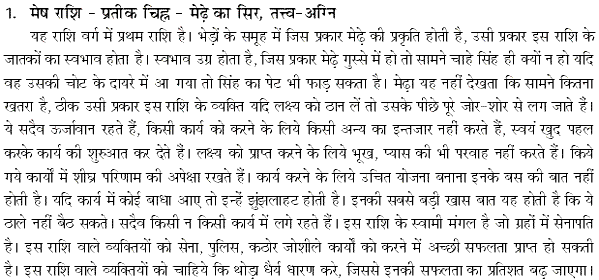 1. मेष राशि - प्रतीक चिह्न - मेढ़े का सिर, तत्त्व-अग्नि
यह राशि वर्ग में प्रथम राशि है। भेड़ों के समूह में जिस प्रकार मेढ़े की प्रकृति होती है, उसी प्रकार इस राशि के
जातकों का स्वभाव होता है। स्वभाव उग्र होता है, जिस प्रकार मेढ़े गुस्से में हो तो सामने चाहे सिंह ही क्यों न हो यदि
वह उसकी चोट के दायरे में आ गया तो सिंह का पेट भी फाड़ सकता है। मेढ़ा यह नहीं देखता कि सामने कितना
खतरा है, ठीक उसी प्रकार इस राशि के व्यक्ति यदि लक्ष्य को ठान लें तो उसके पीछे पूरे जोर-शोर से लग जाते हैं।
ये सदैव ऊर्जावान रहते हैं, किसी कार्य को करने के लिये किसी अन्य का इन्तजार नहीं करते हैं, स्वयं खुद पहल
करके कार्य की शुरुआत कर देते हैं। लक्ष्य को प्राप्त करने के लिये भूख, प्यास की भी परवाह नहीं करते हैं। किये
गये कार्यों में शीघ्र परिणाम की अपेक्षा रखते हैं। कार्य करने के लिए उचित योजना बनाना इनके बस की बात नहीं
होती है। यदि कार्य में कोई बाधा आए तो इन्हें झुंझलाहट होती है। इनकी सबसे बड़ी खास बात यह होती है कि ये
ठाले नहीं बैठ सकते। सदैव किसी न किसी कार्य में लगे रहते हैं। इस राशि के स्वामी मंगल है जो ग्रहों में सेनापति
है। इस राशि वाले व्यक्तियों को सेना, पुलिस, कठोर जोशीले कार्यों को करने में अच्छी सफलता प्राप्त हो सकती
है। इस राशि वाले व्यक्तियों को चाहिये कि थोड़ा धैर्य धारण करे, जिससे इनकी सफलता का प्रतिशत बढ़ जाएगा।